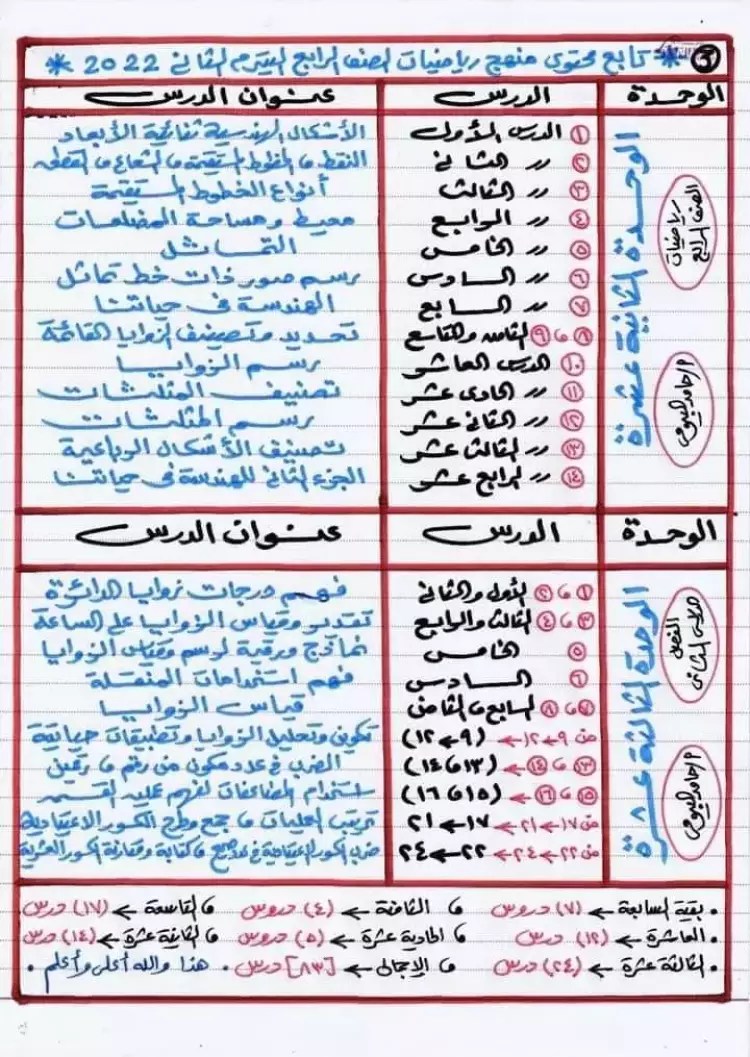 ③ * تابع محتوى منهج رياضيات الصف الرابع الترم الثاني 2022 *
الوحدة الدرس عنوان الدرس
الوحدة الثانية عشرة
رياضيات الصف الرابع
م/حامد البيومي
① الدرس الأول الأشكال الهندسية ثنائية الأبعاد
② 〃 الثاني النقط و الخطوط المستقيمة و الشعاع و القطعه
③ 〃 الثالث أنواع الخطوط المستقيمة
④ 〃 الرابع محيط ومساحة المضلعات
⑤ 〃 الخامس التماثل
⑥ 〃 السادس رسم صور ذات خط تماثل
⑦ 〃 السابع الهندسة فى حياتنا
٨ و ٩ الثامن والتاسع تحديد وتصنيف الزوايا القائمة
⑩ الدرس العاشر رسم الزوايا
⑪ 〃 الحادى عشر تصنيف المثلثات
⑫ 〃 الثانى عشر رسم المثلثات
⑬ 〃 الثالث عشر تصنيف الأشكال الرباعية
⑭ 〃 الرابع عشر الجزء الثانى للهندسة فى حياتنا
الوحدة الدرس عنوان الدرس
الوحدة الثالثة عشرة
الفصل
م/حامد البيومي
① و ② الأول والثانى فهم درجات زوايا الدائرة
③ و ④ الثالث والرابع تقدير وقياس الزوايا على الساعة
⑤ الخامس نماذج ورقية لرسم وقياس الزوايا
⑥ السادس فهم استخدامات المنقلة
⑦ و ⑧ السابع و الثامن قياس الزوايا
من ٩ ← ١٢ ← (٩ ← ١٢) تكوين وتحليل الزوايا وتطبيقات حياتية
⑬ و ⑭ ← (١٣ و ١٤) الضرب فى عدد مكون من رقم و رقمين
⑮ و ⑯ ← (١٥ و ١٦) استخدام المضاعفات لفهم عملية القسمة
من ١٧ ← ٢١ ← ١٧ ← ٢١ ترتيب العمليات و جمع وطرح الكسور الاعتيادية
من ٢٢ ← ٢٤ ← ٢٢ ← ٢٤ ضرب الكسور الاعتيادية فى و كتابة ومقارنة الكسور العشرية
• بقية السابعة ← (٧) دروس و الثامنة ← (٤) دروس و التاسعة ← (١٧) درس
• العاشرة ← (١٢) درس و الحادية عشرة ← (٥) دروس و الثانية عشرة ← (١٤) درس
• الثالثة عشرة ← (٢٤) درس و الإجمالى ← [٨٣] درس • هذا والله أعلى وأعلم •